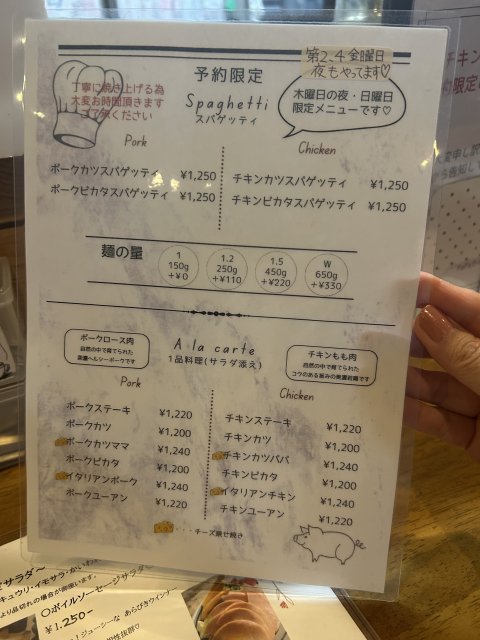 第2、4金曜日
夜もやってます♡
予約限定
丁寧に焼き上げる為
大変お時間頂きます
ご了承ください
Spaghetti
スパゲッティ
木曜日の夜・日曜日
限定メニューです♡
Pork
Chicken
ポークカツスパゲッティ ¥1,250
ポークピカタスパゲッティ ¥1,250
チキンカツスパゲッティ ¥1,250
チキンピカタスパゲッティ ¥1,250
麺の量
1
150g
+¥0
1.2
250g
+¥110
1.5
450g
+¥220
W
650g
+¥330
ポークロース肉
自然の中で育てられた
A la carte
1品料理(サラダ添え)
チキンもも肉
自然の中で育てられた
Pork
Chicken
ポークステーキ ¥1,220
ポークカツ ¥1,200
ポークカツママ ¥1,240
ポークピカタ ¥1,200
イタリアンポーク ¥1,240
ポークユーアン ¥1,220
チキンステーキ ¥1,220
チキンカツ ¥1,200
チキンカツパパ ¥1,240
チキンピカタ ¥1,200
イタリアンチキン ¥1,240
チキンユーアン ¥1,220
・・・チーズ乗せ焼き
サラダ～
キュウリ・イモサラ・かいわ
より品切れの場合が御座います。
○ボイルソーセージサラダ～
¥1,250-
ジューシーな あらびきウインナー